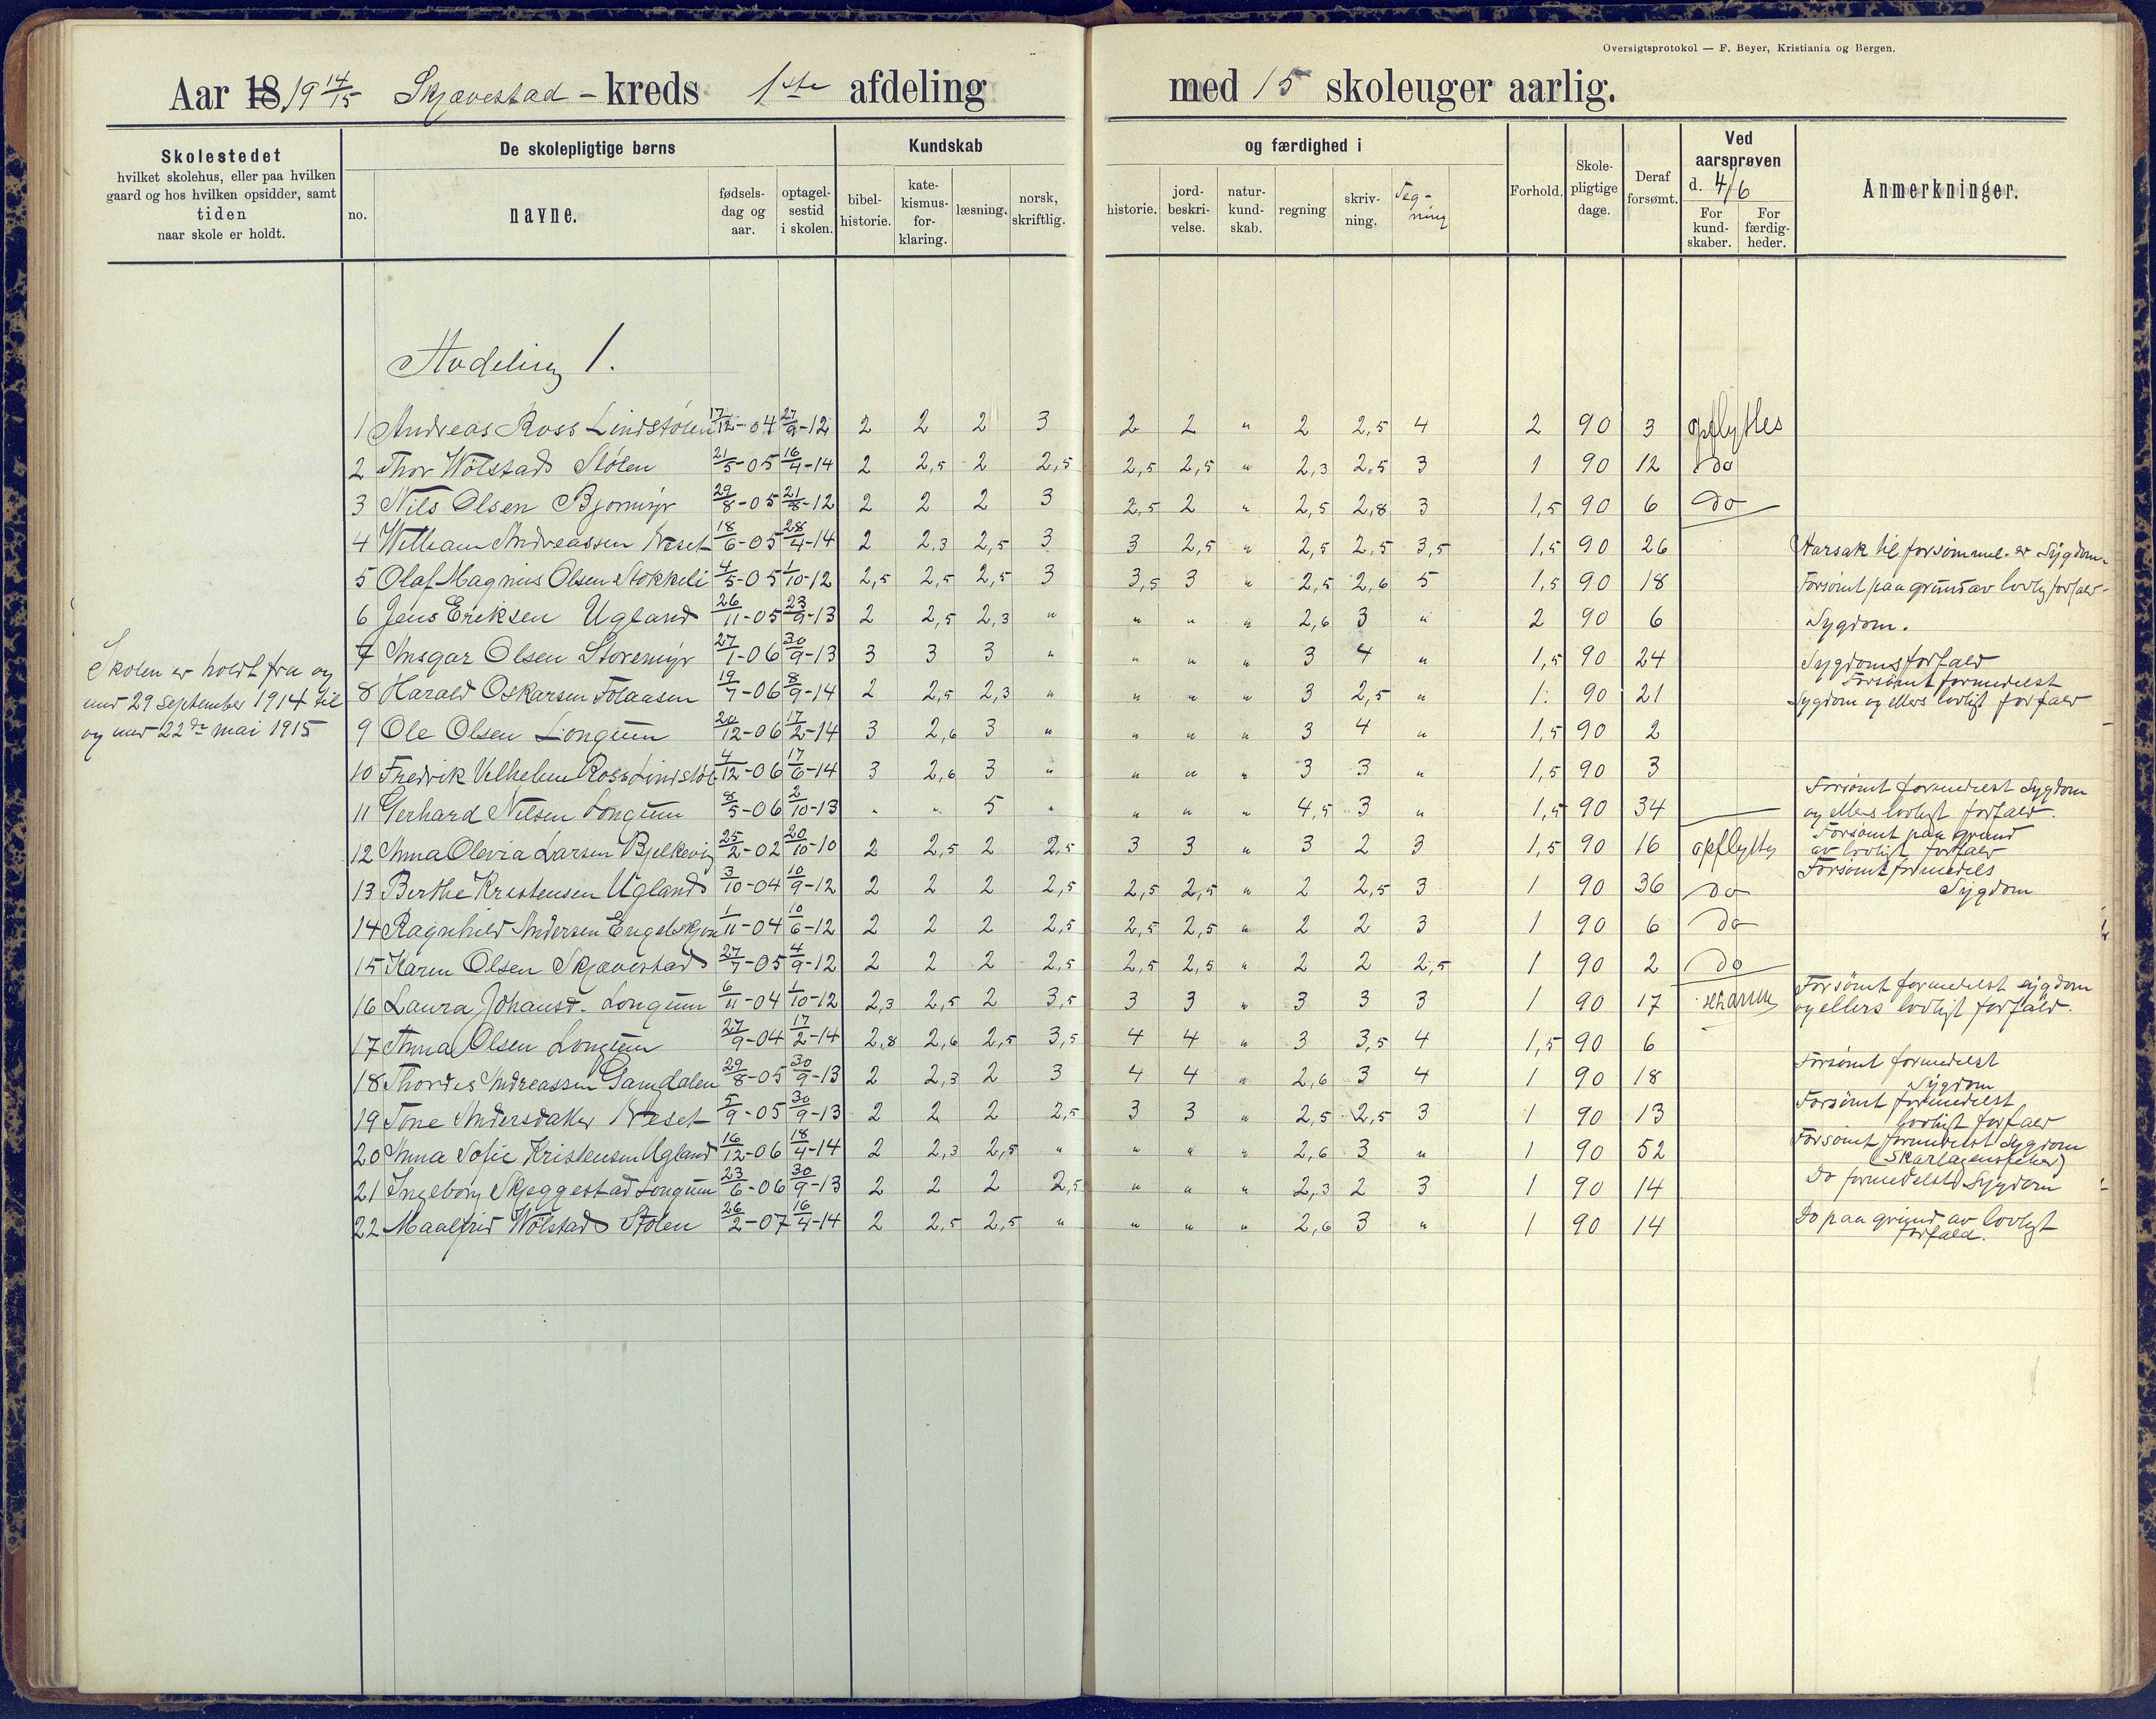 Oversigtsprotokol — F. Beyer, Kristiania og Bergen.
Aar 18 19 14/15 Skjævestad - kreds 1ste afdeling med 15 skoleuger aarlig.
Skolestedet
hvilket skolehus, eller paa hvilken
gaard og hos hvilken opsidder, samt
tiden
naar skole er holdt.
De skolepligtige børns
no.
navne.
fødsels-
dag og
aar.
optagel-
sestid
i skolen.
Kundskab
bibel-
historie.
kate-
kismus-
for-
klaring.
læsning.
norsk,
skriftlig.
og færdighed i
historie.
jord-
beskri-
velse.
natur-
kund-
skab.
regning
skriv-
ning.
Teg-
ning
Forhold.
Skole-
pligtige
dage.
Deraf
forsømt.
Ved
aarsprøven
d. 4/6
For
kund-
skaber.
For
færdig-
heder.
Anmerkninger.
Skolen er holdt fra og
med 29 september 1914 til
og med 22de mai 1915
Avdeling 1.
1 Andreas Ross Lindstølen 17/12-04 27/9-12 2 2 2 3 2 2 " 2 2,5 4 2 90 3 opflyttes
2 Thor Wölstads Stølen 21/5-05 16/4-14 2 2,5 2 2,5 2,5 2,5 " 2,3 2,5 3 1 90 12 do
3 Nils Olsen Bjormyr 29/8-05 21/8-12 2 2 2 3 2,5 2 " 2,5 2,8 3 1,5 90 6 do
4 William Andreassen Neset 18/6-05 28/4-14 2 2,3 2,5 3 3 2,5 " 2,5 2,5 3,5 1,5 90 26 Aarsak til forsømmel. er Sygdom.
5 Olaf Magnus Olsen Stokkeli 4/5-05 1/10-12 2,5 2,5 2,5 3 3,5 3 " 2,5 2,6 5 1,5 90 18 Forsømt paa grund av lovlig forfald
6 Jens Eriksen Ugland 26/11-05 23/9-13 2 2,5 2,3 " " " " 2,6 3 " 2 90 6 Sygdom.
7 Ansgar Olsen Storemyr 27/1-06 30/9-13 3 3 3 " " " " 3 4 " 1,5 90 24 Sygdomsforfald
8 Harald Oskarsen Tolaasen 19/7-06 8/9-14 2 2,5 2,3 " " " " 3 2,5 " 1 90 21 Forsømt formedelst
Sygdom og ellers lovligt forfald
9 Ole Olsen Longum 20/12-06 17/2-14 3 2,6 3 " " " " 3 4 " 1,5 90 2
10 Fredrik Vilhelm Ross Lindstøl 4/12-06 17/6-14 3 2,6 3 " " " " 3 3 " 1,5 90 3
11 Gerhard Nilsen Longum 8/5-06 2/10-13 " " 5 " " " " 4,5 3 " 1,5 90 34 Forsømt formedelst Sygdom
og ellers lovligt forfald.
12 Anna Olevia Larsen Bjelkevig 25/2-02 20/10-10 2 2,5 2 2,5 3 3 " 3 2 3 1,5 90 16 opflyttes Forsømt paa grund
av lovligt forfald
13 Berthe Kristensen Ugland 3/10-04 10/9-12 2 2 2 2,5 2,5 2,5 " 2 2,5 3 1 90 36 do Forsømt formedels
Sygdom
14 Ragnhild Andersen Engelskjøn 1/11-04 10/6-12 2 2 2 2,5 2,5 2,5 " 2 2 3 1 90 6 do
15 Karen Olsen Skjævestad 27/7-05 4/9-12 2 2 2 2,5 2,5 2,5 " 2 2 2,5 1 90 2 do
16 Laura Johansd. Longum 6/11-04 1/10-12 2,3 2,5 2 3,5 3 3 " 3 3 3 1 90 17 Forsømt formedelst sygdom
og ellers lovligt forfald.
17 Anna Olsen Longum 27/9-04 17/2-14 2,8 2,6 2,5 3,5 4 4 " 3 3,5 4 1,5 90 6
18 Thordis Andreassen Gamdalen 29/8-05 30/9-13 2 2,3 2 3 4 4 " 2,6 3 4 1 90 18 Forsømt formedelst
Sygdom
19 Tone Andersdatter Neset 5/9-05 30/9-13 2 2 2 2,5 3 3 " 2,5 2,5 3 1 90 13 Forsømt formedelst
lovligt forfald
20 Anna Sofie Kristensen Ugland 16/12-06 18/4-14 2 2,3 2,5 " " " " 2,6 3 " 1 90 52 Forsømt formedelst Sygdom
(Skarlagensfeber)
21 Ingeborg Skjeggestad Longum 23/6-06 30/9-13 2 2 2 2,5 " " " 2,3 2 3 1 90 14 Do formedelst Sygdom
22 Maalfrid Wölstads Stølen 26/2-07 16/4-14 2 2,5 2,5 " " " " 2,6 3 " 1 90 14 Do paa grund av lovligt
forfald.